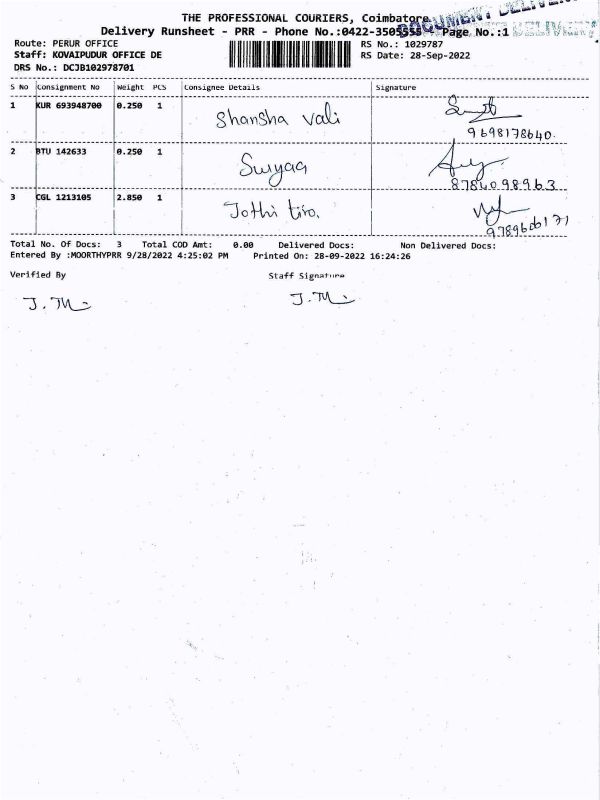 THE PROFESSIONAL COURIERS, Coimbatore
DOCUMENT DELIVERY
Delivery Runsheet - PRR - Phone No.:0422-3505555 Page No.:1
Route: PERUR OFFICE
RS No.: 1029787
Staff: KOVAIPUDUR OFFICE DE
RS Date: 28-Sep-2022
DRS No.: DCJB102978701
S No Consignment No Weight PCS Consignee Details Signature
1 KUR 693948700 0.250 1 Shansha Vali
9698178640.
2 BTU 142633 0.250 1 Suryaa
8784098963
3 CGL 1213105 2.850 1 Jothi
Total No. Of Docs: 3 Total COD Amt: 0.00 Delivered Docs: Non Delivered Docs:
Entered By :MOORTHYPRR 9/28/2022 4:25:02 PM Printed On: 28-09-2022 16:24:26
Verified By Staff Signature